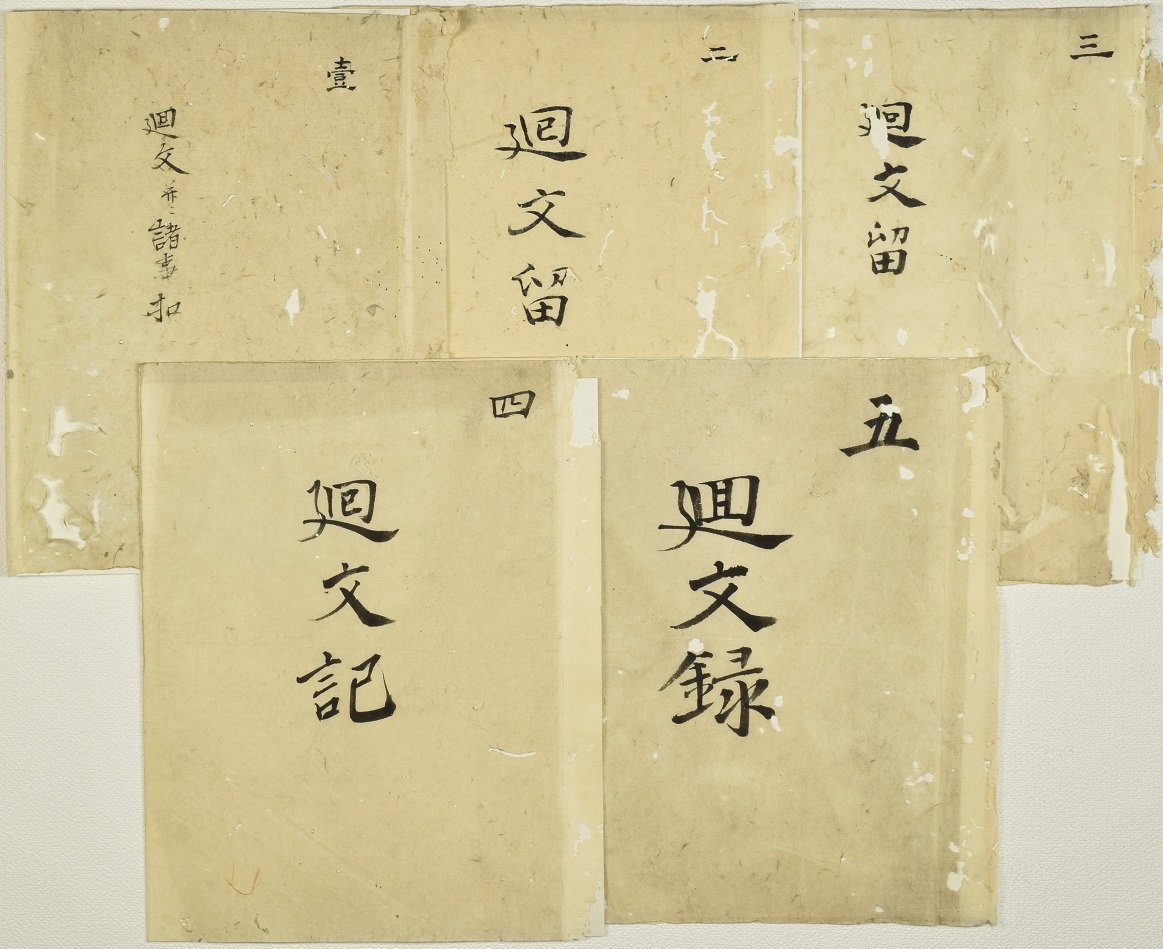 壹
廻文并ニ諸事扣
二
廻文留
三
廻文留
四
廻文記
五
廻文録